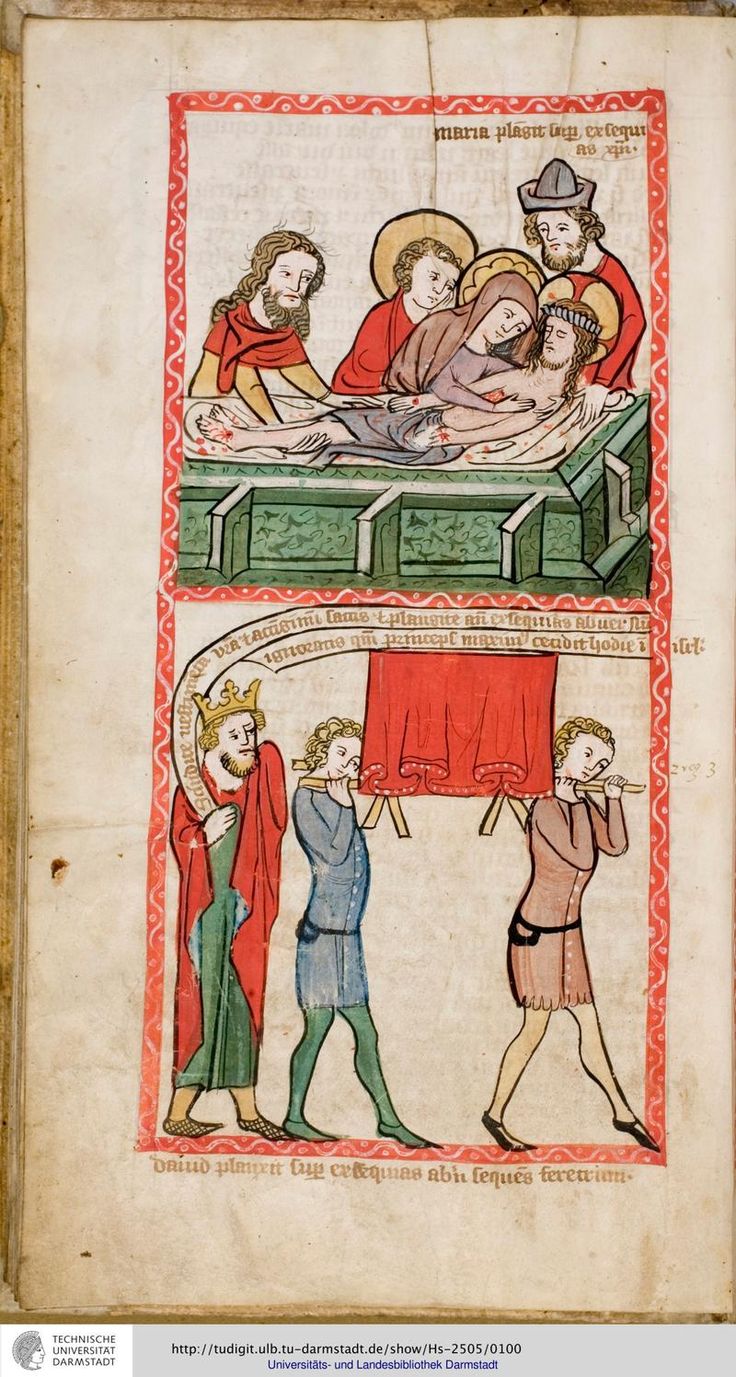 maria plāgit sup̱ exsequi
as xp̄i.
Scindite vestimēta vr̄a ⁊ accīgimī saccis ⁊ plangite an̄ exsequias abner
ignoratis qm̄ princeps maximꝰ cecidit hodie ī isrl:
2 reg 3
dauid planxit sup̱ exsequias abn̄ sequēs feretrum.
TECHNISCHE
UNIVERSITÄT
DARMSTADT
http://tudigit.ulb.tu-darmstadt.de/show/Hs-2505/0100
Universitäts- und Landesbibliothek Darmstadt